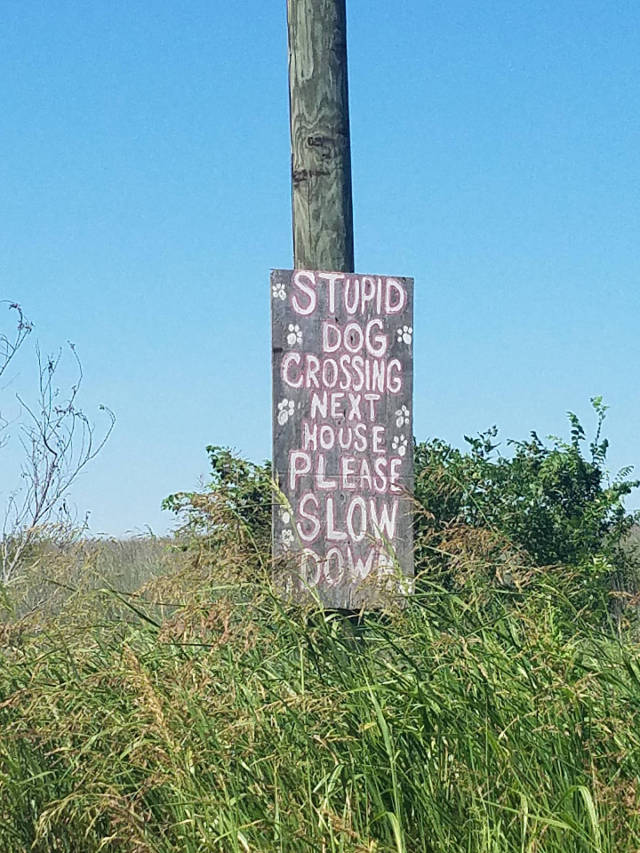 STUPID
DOG
CROSSING
NEXT
HOUSE
PLEASE
SLOW
DOWN